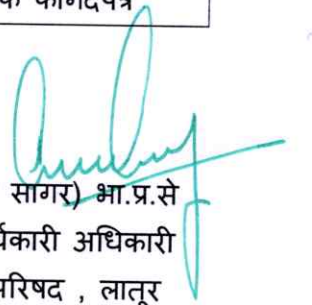 कागदपत्र
सागर) भा.प्र.से
कारी अधिकारी
परिषद , लातूर